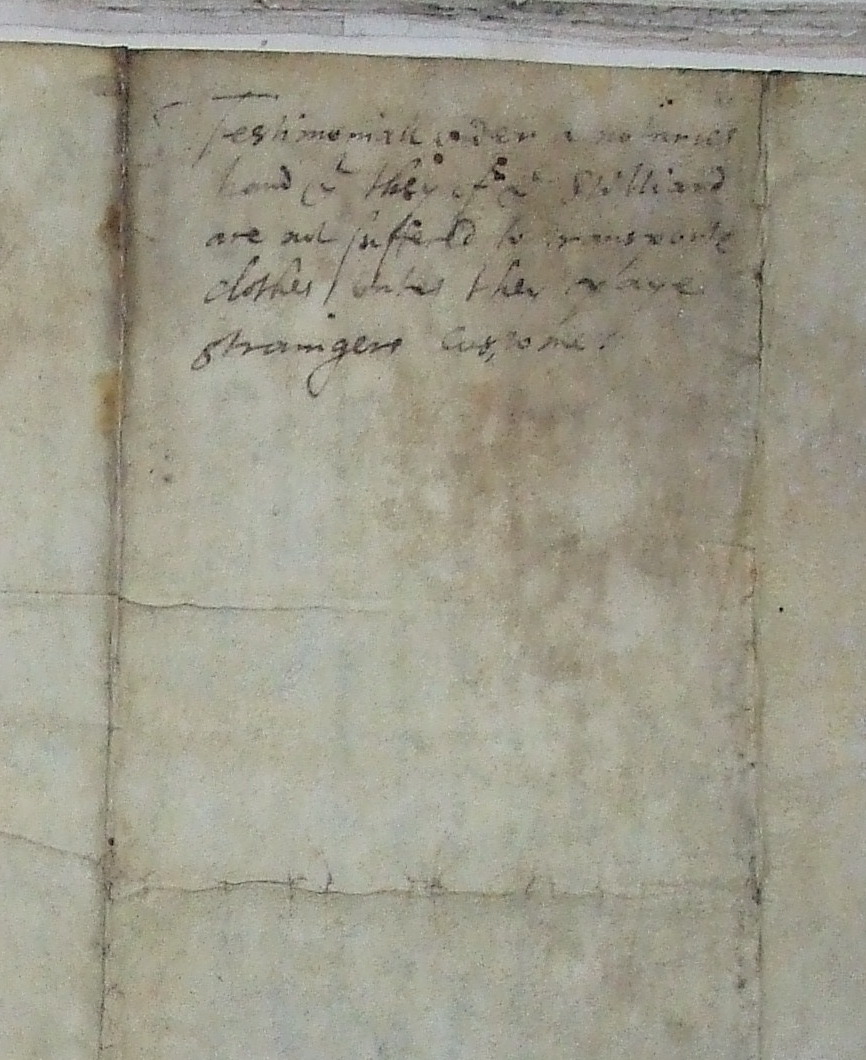 Testimoniall under a notaries
hand yt they of ye Stilliard
are not suffered to transporte
clothes / unles they paye
straingers custome.